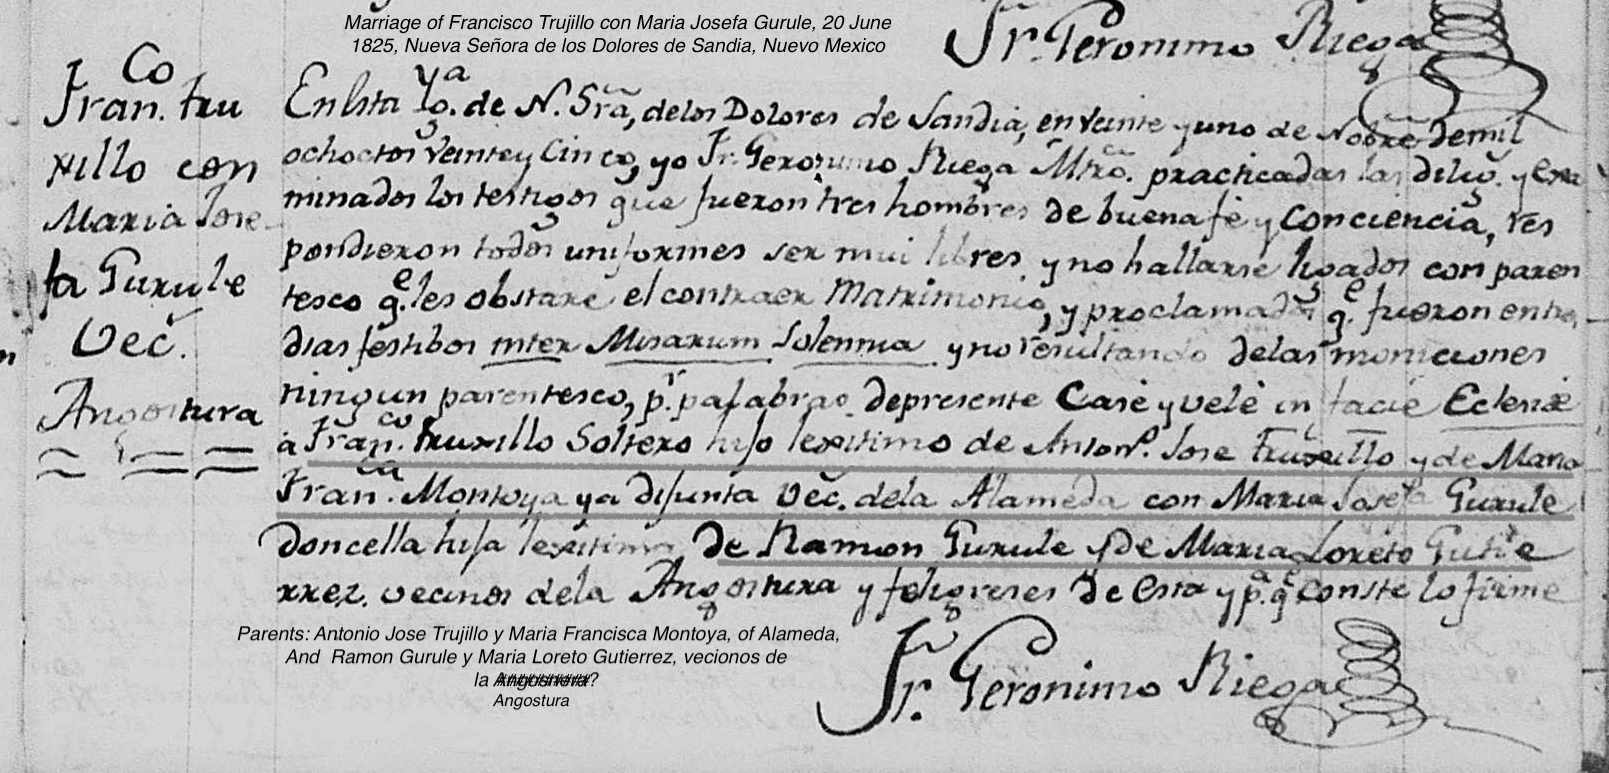 Marriage of Francisco Trujillo con Maria Josefa Gurule, 20 June
1825, Nueva Señora de los Dolores de Sandia, Nuevo Mexico
Fr. Geronimo Riega
Fran.co tru
xillo con
Maria Jose
fa Gurule
Vec.
Angostura
En esta Yga. de N. Sra, de los Dolores de Sandia, en veinte y uno de Nobre de mil
ochoctos veinte y Cinco, yo Fr. Geronimo Riega Mtro. practicadas las dilig. y exa
minados los testigos que fueron tres hombres de buena fe y conciencia, res
pondieron todos uniformes ser mui libres y no hallarse ligados con paren
tesco q.e les obstare el contraer Matrimonio, y proclamados q.e fueron en tres
dias festibos inter Misarum Solemnia y no resultando de las moniciones
ningun parentesco, p.r palabras de presente Casé y velé in facie Eclesiæ
a Fran.co truxillo Soltero hijo lexitimo de Anton.o Jose Truxillo y de Maria
Fran.ca Montoya ya difunta Vec. de la Alameda con Maria Josefa Gurule
doncella hija lexitima de Ramon Gurule y de Maria Loreto Gutie
rrez. vecinos de la Angostura y feligreses de esta y p.a q.e conste lo firme
Fr. Geronimo Riega
Parents: Antonio Jose Trujillo y Maria Francisca Montoya, of Alameda,
And Ramon Gurule y Maria Loreto Gutierrez, vecionos de
la ?
Angostura